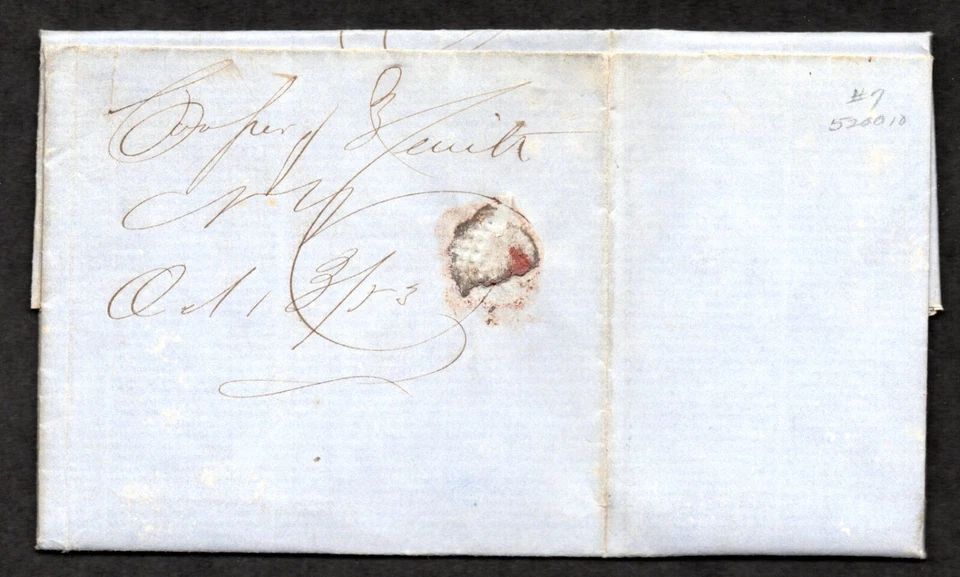 Cooper & Smith
NY
Oct 13/53
#7
520010